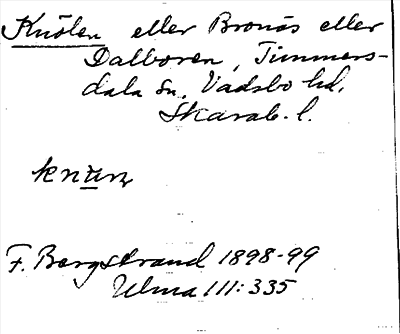 Knölen eller Bronäs eller
Dalboren, Timmers-
dala sn, Vadsbo hd,
Skarab. l.
F. Bergstrand 1898-99
Ulma 111:335